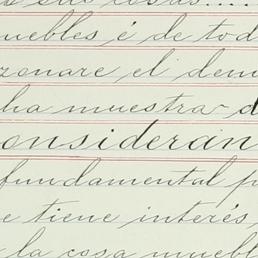 sus cosas....
muebles é de tod
zonare el dem
ha muestra d
onsideran
fundamental p
e tiene interés,
la cosa muebl